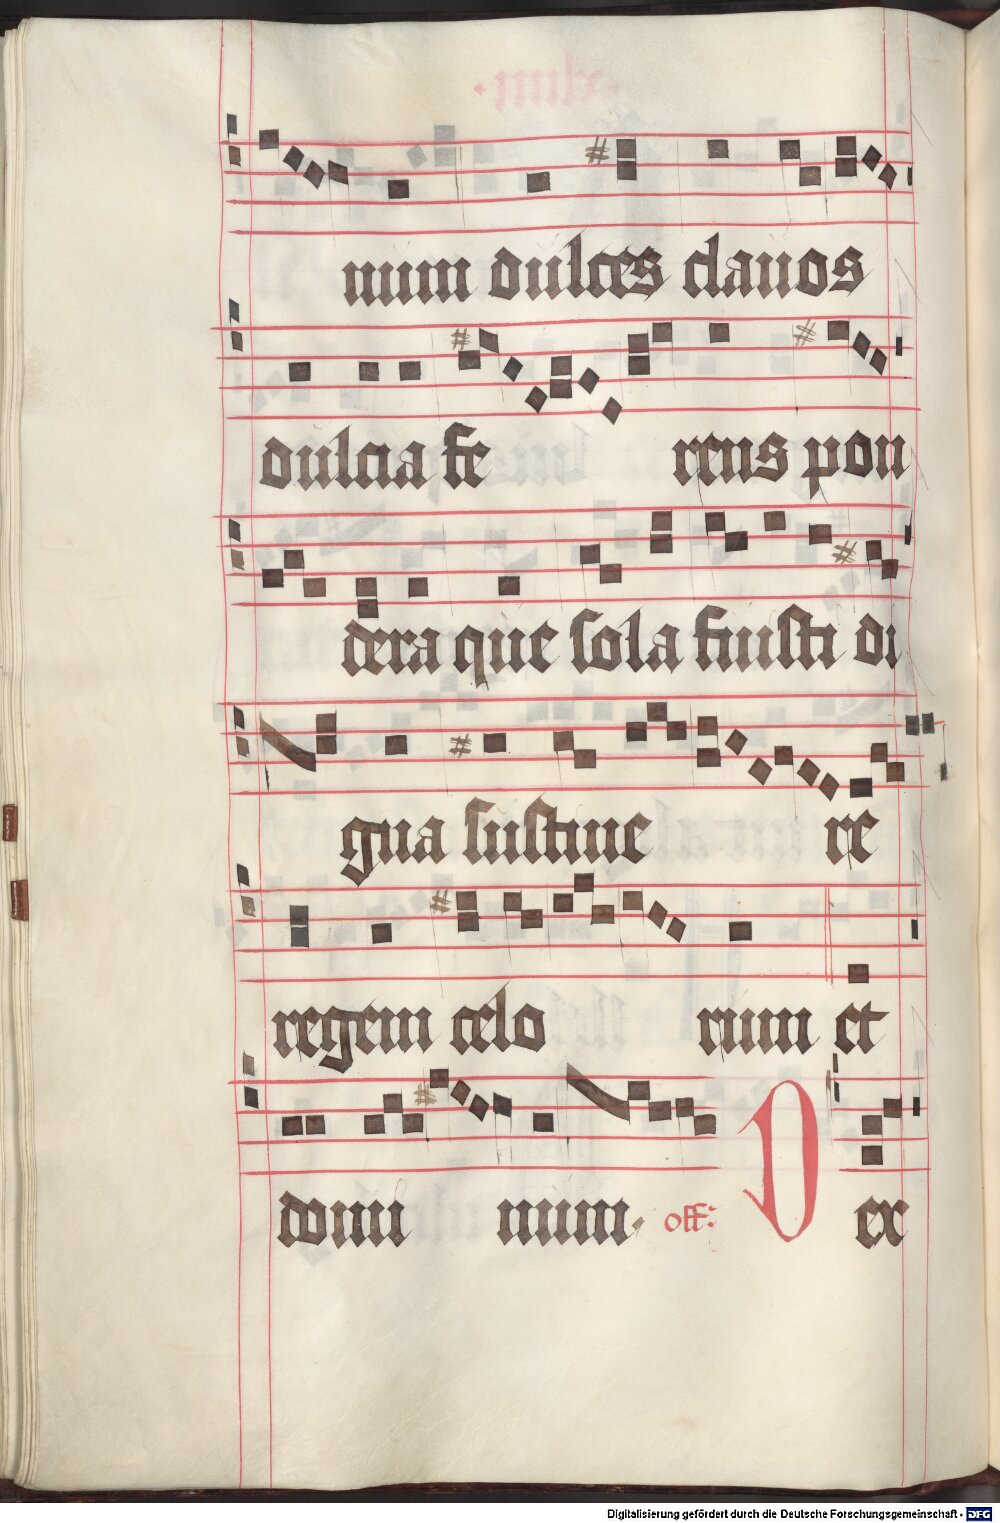 num dulces clauos
dulcia fe rens pon
dera que sola fuisti di
gna sustine re
regem celo rum et
domi num. off: D ex
Digitalisierung gefördert durch die Deutsche Forschungsgemeinschaft - DFG